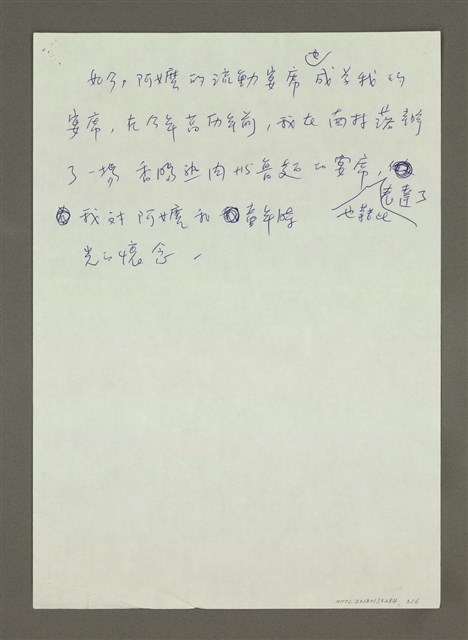 如今，阿嬤的流動宴席也成為我的
宴席，在今年舊曆年前，我在南村落辦
了一場香腸熟肉水魯麵的宴席，
也藉此表達了
我對阿嬤和童年時
光的懷念。